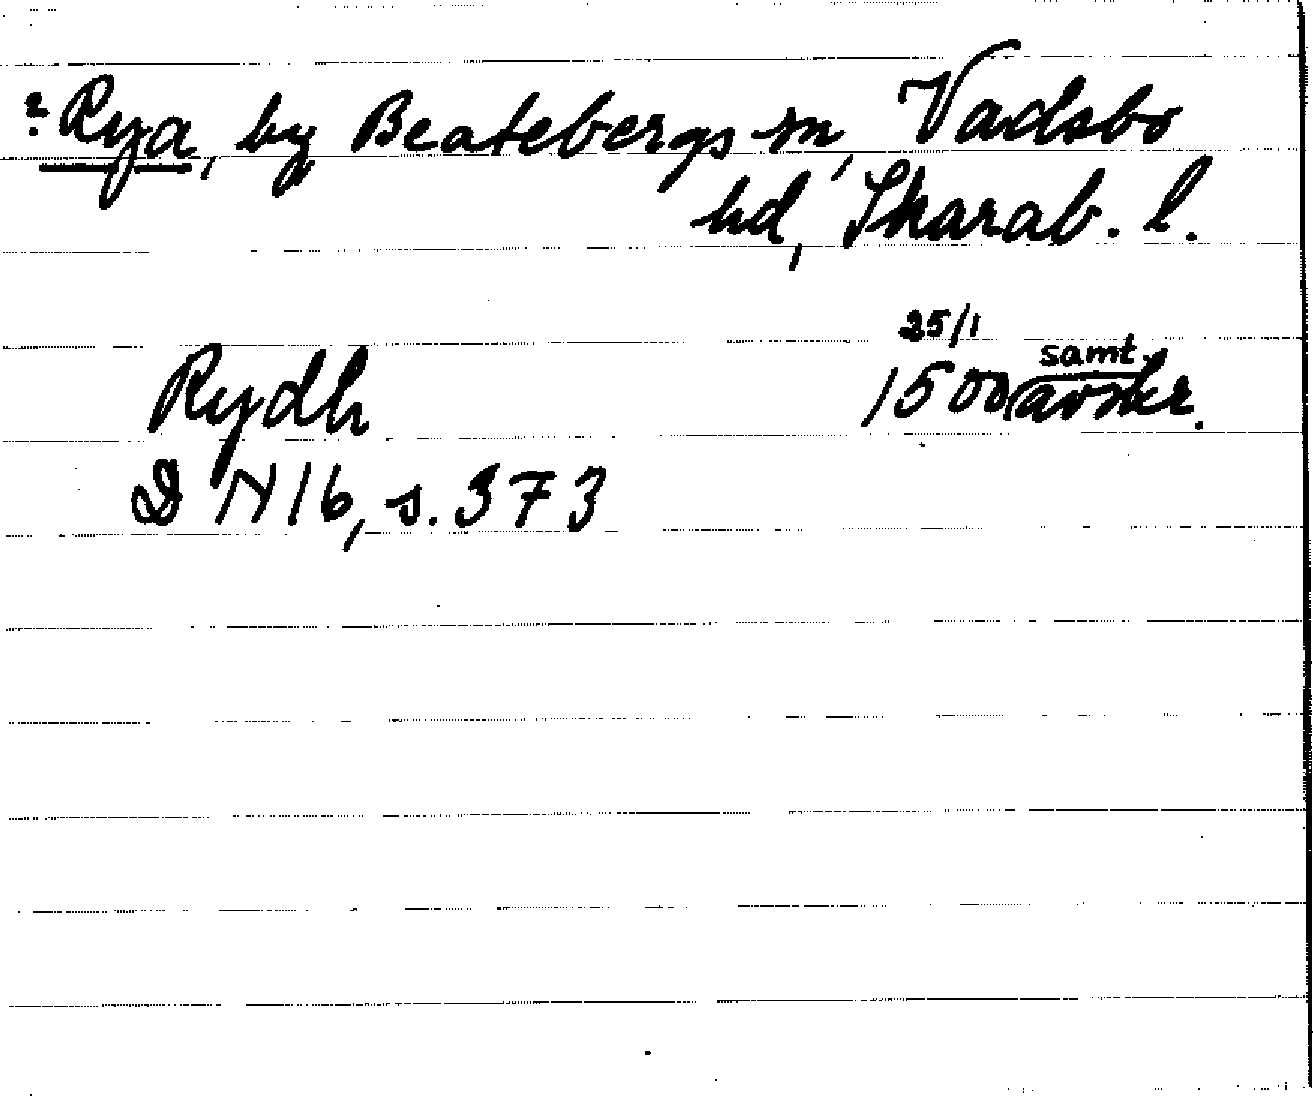 ? Rya, by Beatebergs sn, Vadsbo
hd, Skarab. l.
25/1
Rydh 1500 (samt. avskr.
DN 16, s. 373